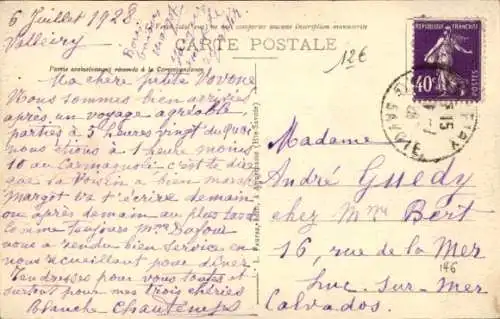 6 Juillet 1928
Valleiry
CARTE POSTALE
12€
Partie exclusivement réservée à la Correspondance
REPUBLIQUE FRANÇAISE
POSTES
40c
Ma chère petite Vovone
Nous sommes bien arrivées
après un voyage agréable
parties à 3 heures vingt du quai
nous étions à 1 heure moins
10 au Carmagnoli c'est te dire
que la Voisin a bien marché
Margot va t'écrire demain
ou après demain au plus tard
Comme toujours Mme Dafour
nous a rendu bien service en
nous recueillant pour dîner
Tendresses pour vous toutes et
surtout pour mes trois chéries
Blanche Chautemps
Madame
André Guedy
chez Mme Bert
16, rue de la Mer
Luc-sur-Mer
Calvados.
146